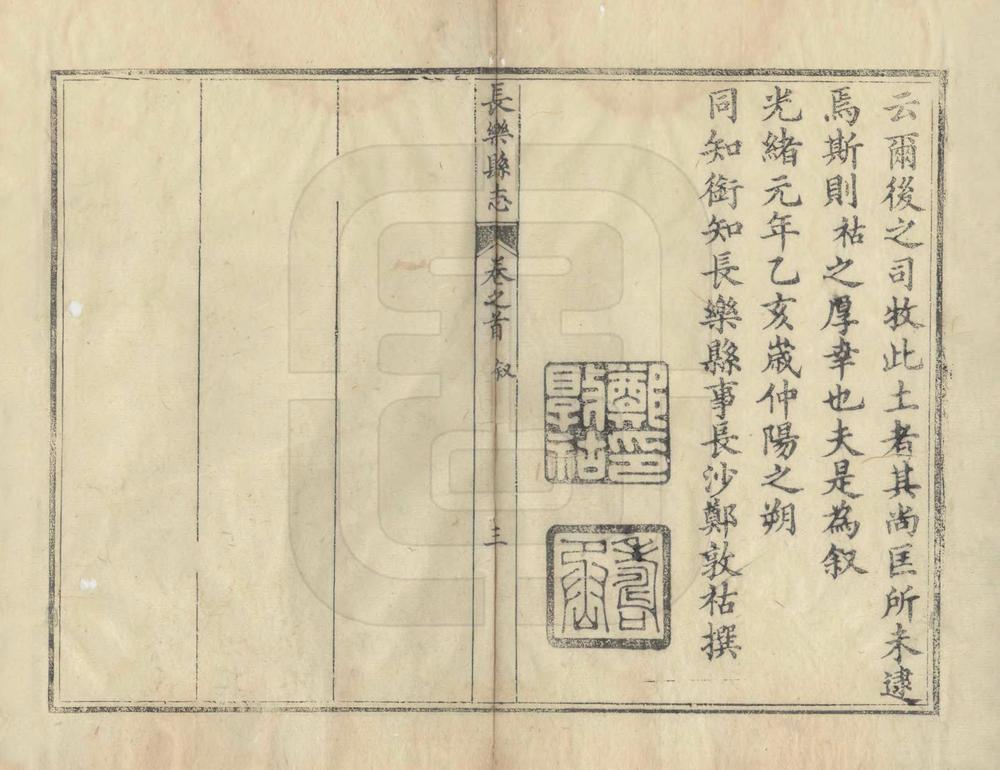 云爾後之司牧此土者其尚匡所未逮
焉斯則祜之厚幸也夫是為叙
光緒元年乙亥歲仲陽之朔
同知銜知長樂縣事長沙鄭敦祜撰
鄭敦祜印
長樂縣志
卷之首
叙
三